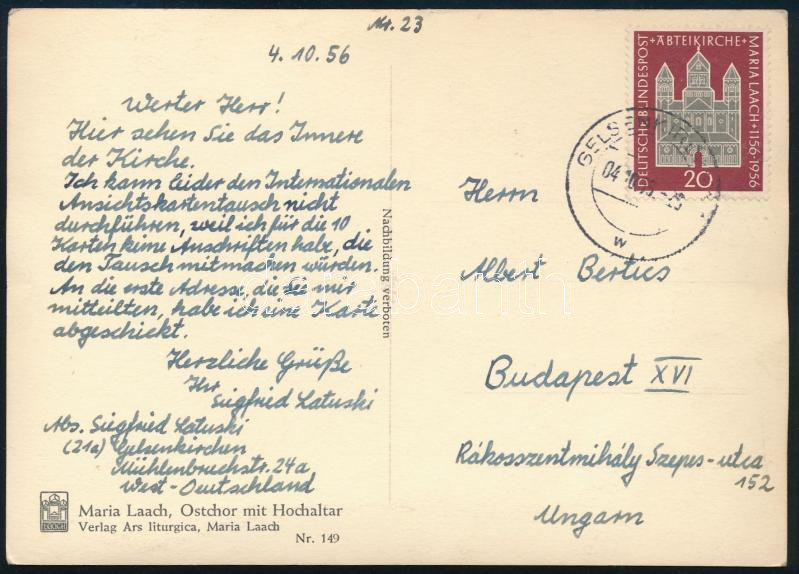 Nr. 23
4.10.56
Werter Herr!
Hier sehen Sie das Innere
der Kirche.
Ich kann leider den Internationalen
Ansichtskartentausch nicht
durchführen, weil ich für die 10
Karten keine Anschriften habe, die
den Tausch mitmachen würden.
An die erste Adresse, die sie mir
mitteilten, habe ich eine Karte
abgeschickt.
Herzliche Grüße
Ihr
Siegfried Latuski
Abs. Siegfried Latuski
(21a) Gelsenkirchen
Mühlenbruchstr. 24a
West-Deutschland
Maria Laach, Ostchor mit Hochaltar
Verlag Ars liturgica, Maria Laach
Nr. 149
LAACH
Nachbildung verboten
DEUTSCHE BUNDESPOST
+ABTEIKIRCHE+
MARIA LAACH+1156-1956
20
GELSENKIRCHEN
04.10.
w
Herrn
Albert Bertus
Budapest XVI
Rákosszentmihály Szepes-utca
152
Ungarn
darabanth